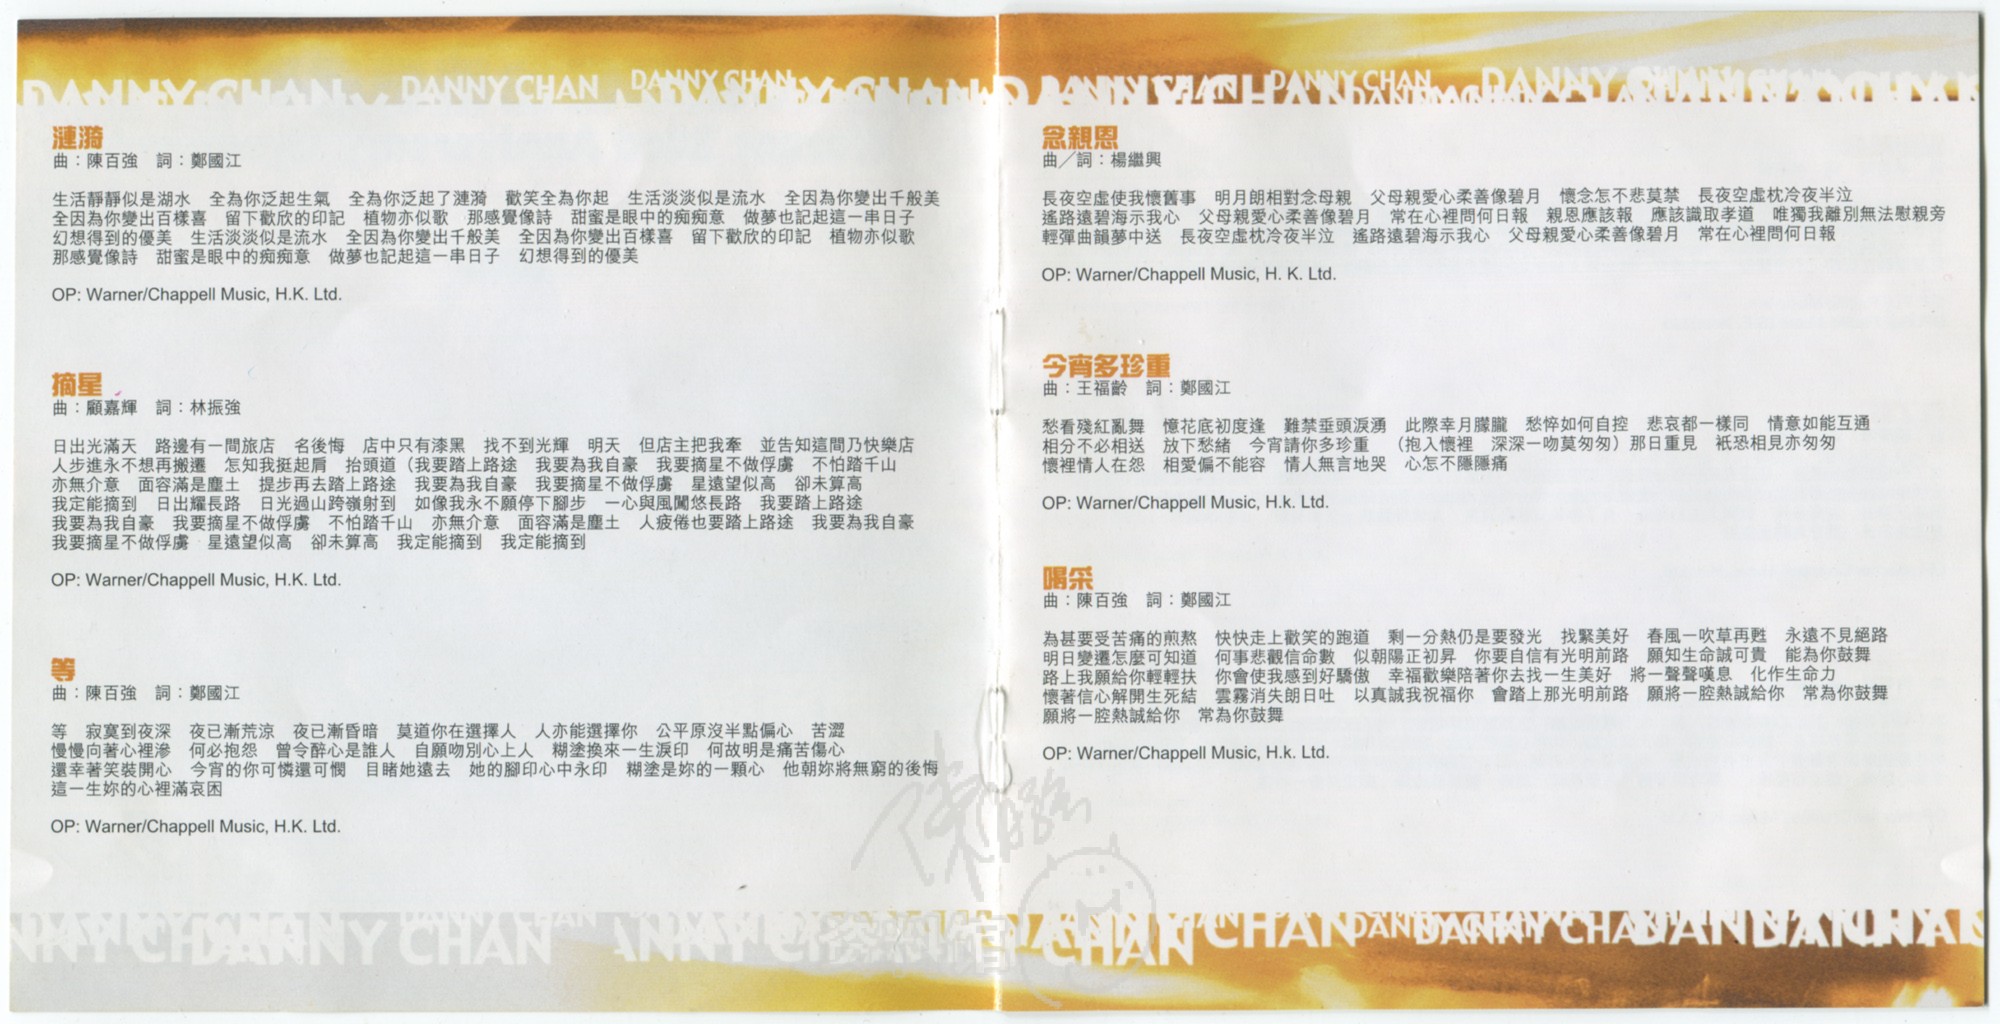 DANNY CHAN DANNY CHAN DANNY CHAN DANNY CHAN DANNY CHAN
漣漪
曲：陳百強　詞：鄭國江
生活靜靜似是湖水　全為你泛起生氣　全為你泛起了漣漪　歡笑全為你起　生活淡淡似是流水　全因為你變出千般美
全因為你變出百樣喜　留下歡欣的印記　植物亦似歌　那感覺像詩　甜蜜是眼中的痴痴意　做夢也記起這一串日子
幻想得到的優美　生活淡淡似是流水　全因為你變出千般美　全因為你變出百樣喜　留下歡欣的印記　植物亦似歌
那感覺像詩　甜蜜是眼中的痴痴意　做夢也記起這一串日子　幻想得到的優美
OP: Warner/Chappell Music, H.K. Ltd.
摘星
曲：顧嘉輝　詞：林振強
日出光滿天　路邊有一間旅店　名後悔　店中只有漆黑　找不到光輝　明天　但店主把我牽　並告知這間乃快樂店
人步進永不想再搬遷　怎知我挺起肩　抬頭道（我要踏上路途　我要為我自豪　我要摘星不做俘虜　不怕踏千山
亦無介意　面容滿是塵土　提步再去踏上路途　我要為我自豪　我要摘星不做俘虜　星遠望似高　卻未算高
我定能摘到　日出耀長路　日光過山跨嶺射到　如像我永不願停下腳步　一心與風闖悠長路　我要踏上路途
我要為我自豪　我要摘星不做俘虜　不怕踏千山　亦無介意　面容滿是塵土　人疲倦也要踏上路途　我要為我自豪
我要摘星不做俘虜　星遠望似高　卻未算高　我定能摘到　我定能摘到
OP: Warner/Chappell Music, H.K. Ltd.
等
曲：陳百強　詞：鄭國江
等　寂寞到夜深　夜已漸荒涼　夜已漸昏暗　莫道你在選擇人　人亦能選擇你　公平原沒半點偏心　苦澀
慢慢向著心裡滲　何必抱怨　曾令醉心是誰人　自願吻別心上人　糊塗換來一生淚印　何故明是痛苦傷心
還幸著笑裝開心　今宵的你可憐還可憫　目睹她遠去　她的腳印心中永印　糊塗是妳的一顆心　他朝妳將無窮的後悔
這一生妳的心裡滿哀困
OP: Warner/Chappell Music, H.K. Ltd.
念親恩
曲／詞：楊繼興
長夜空虛使我懷舊事　明月朗相對念母親　父母親愛心柔善像碧月　懷念怎不悲莫禁　長夜空虛枕冷夜半泣
遙路遠碧海示我心　父母親愛心柔善像碧月　常在心裡問何日報　親恩應該報　應該識取孝道　唯獨我離別無法慰親旁
輕彈曲韻夢中送　長夜空虛枕冷夜半泣　遙路遠碧海示我心　父母親愛心柔善像碧月　常在心裡問何日報
OP: Warner/Chappell Music, H. K. Ltd.
今宵多珍重
曲：王福齡　詞：鄭國江
愁看殘紅亂舞　憶花底初度逢　難禁垂頭淚湧　此際幸月朦朧　愁悴如何自控　悲哀都一樣同　情意如能互通
相分不必相送　放下愁緒　今宵請你多珍重　（抱入懷裡　深深一吻莫匆匆）那日重見　衹恐相見亦匆匆
懷裡情人在怨　相愛偏不能容　情人無言地哭　心怎不隱隱痛
OP: Warner/Chappell Music, H.k. Ltd.
喝采
曲：陳百強　詞：鄭國江
為甚要受苦痛的煎熬　快快走上歡笑的跑道　剩一分熱仍是要發光　找緊美好　春風一吹草再甦　永遠不見絕路
明日變遷怎麼可知道　何事悲觀信命數　似朝陽正初昇　你要自信有光明前路　願知生命誠可貴　能為你鼓舞
路上我願給你輕輕扶　你會使我感到好驕傲　幸福歡樂陪著你去找一生美好　將一聲聲嘆息　化作生命力
懷著信心解開生死結　雲霧消失朗日吐　以真誠我祝福你　會踏上那光明前路　願將一腔熱誠給你　常為你鼓舞
願將一腔熱誠給你　常為你鼓舞
OP: Warner/Chappell Music, H.k. Ltd.
DANNY CHAN DANNY CHAN DANNY CHAN DANNY CHAN